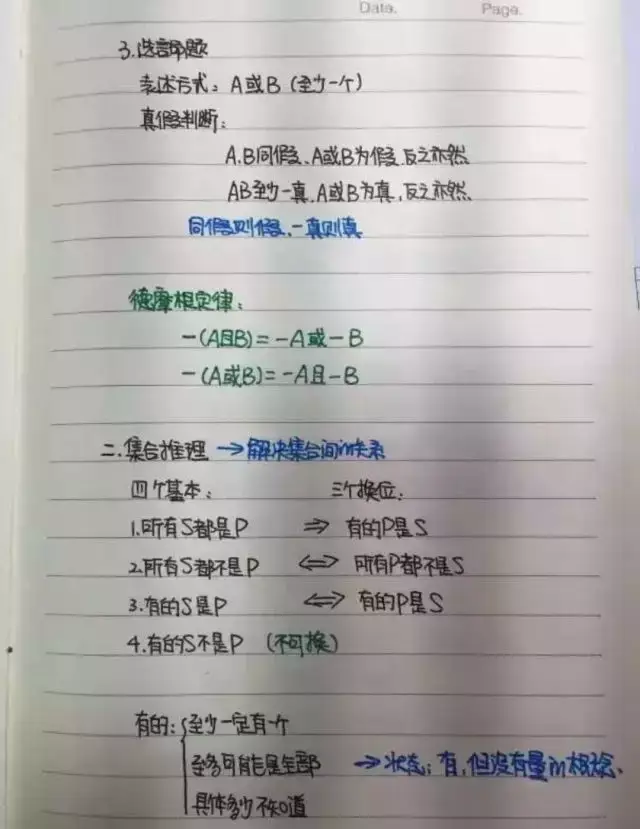 Date.
Page.
3.选言命题
表述方式：A或B（至少一个）
真假判断：
A.B同假、A或B为假，反之亦然
AB至少一真、A或B为真，反之亦然
同假则假、一真则真
德摩根定律：
－(A且B)=－A或－B
－(A或B)=－A且－B
二.集合推理 →解决集合间的关系
四个基本： 三个换位：
1.所有S都是P ⇒ 有的P是S
2.所有S都不是P ⇔ 所有P都不是S
3.有的S是P ⇔ 有的P是S
4.有的S不是P （不可换）
有的：{至少一定有一个
至多可能是全部 →状态：有，但没有量的概念.
具体多少不知道